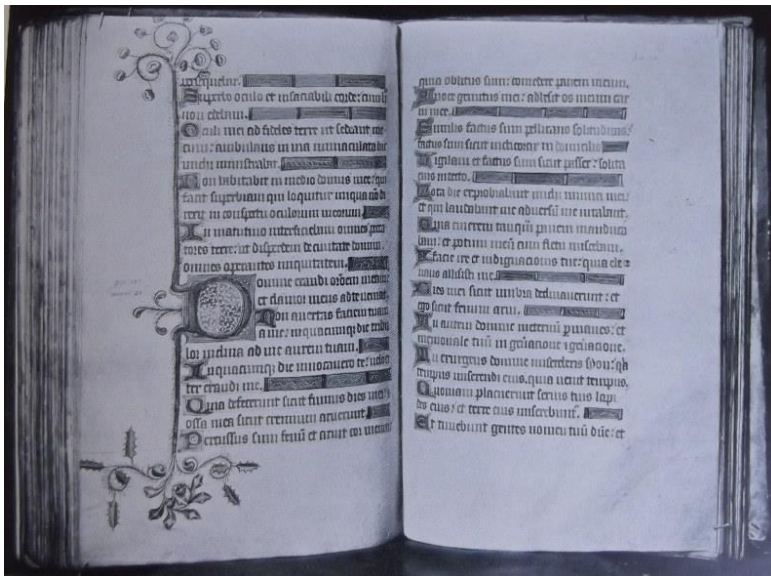 persequebar.
Superbo oculo et insaciabili corde: cum hoc
non edebam.
Oculi mei ad fideles terre ut sedeant me-
cum: ambulans in via immaculata hic
michi ministrabat.
Non habitabit in medio domus mee: qui
facit superbiam qui loquitur iniqua non di
rexit in conspectu oculorum meorum.
In matutino interficiebam omnes pecca
tores terre: ut disperdem de civitate domini
omnes operantes iniquitatem.
Domine exaudi orationem meam:
et clamor meus ad te veniat.
Non avertas faciem tuam
a me: in quacumque die tribu
lor inclina ad me aurem tuam.
In quacumque die invocavero te: veloci
ter exaudi me.
Quia defecerunt sicut fumus dies mei:
ossa mea sicut cremium aruerunt.
Percussus sum fenum et aruit cor meum
quia oblitus sum: comedere panem meum.
A voce gemitus mei: adhesit os meum car
ni mee.
Similis factus sum pellicano solitudinis:
factus sum sicut nicticorax in domicilio
Vigilavi et factus sum sicut passer: solita
rius in tecto.
Tota die exprobrabant michi inimici mei:
et qui laudabant me adversum me iurabant.
Quia cinerem tanquam panem manduca
bam: et potum meum cum fletu miscebam.
A facie ire et indignacionis tue: quia ele-
vans allisisti me.
Dies mei sicut umbra declinaverunt: et
ego sicut fenum arui.
Tu autem domine in eternum permanes: et
memoriale tuum in generacione et generacione.
Tu exurgens domine misereberis syon: quia
tempus miserendi eius. quia venit tempus.
Quoniam placuerunt servis tuis lapi
des eius: et terre eius miserebuntur.
Et timebunt gentes nomen tuum domine: et